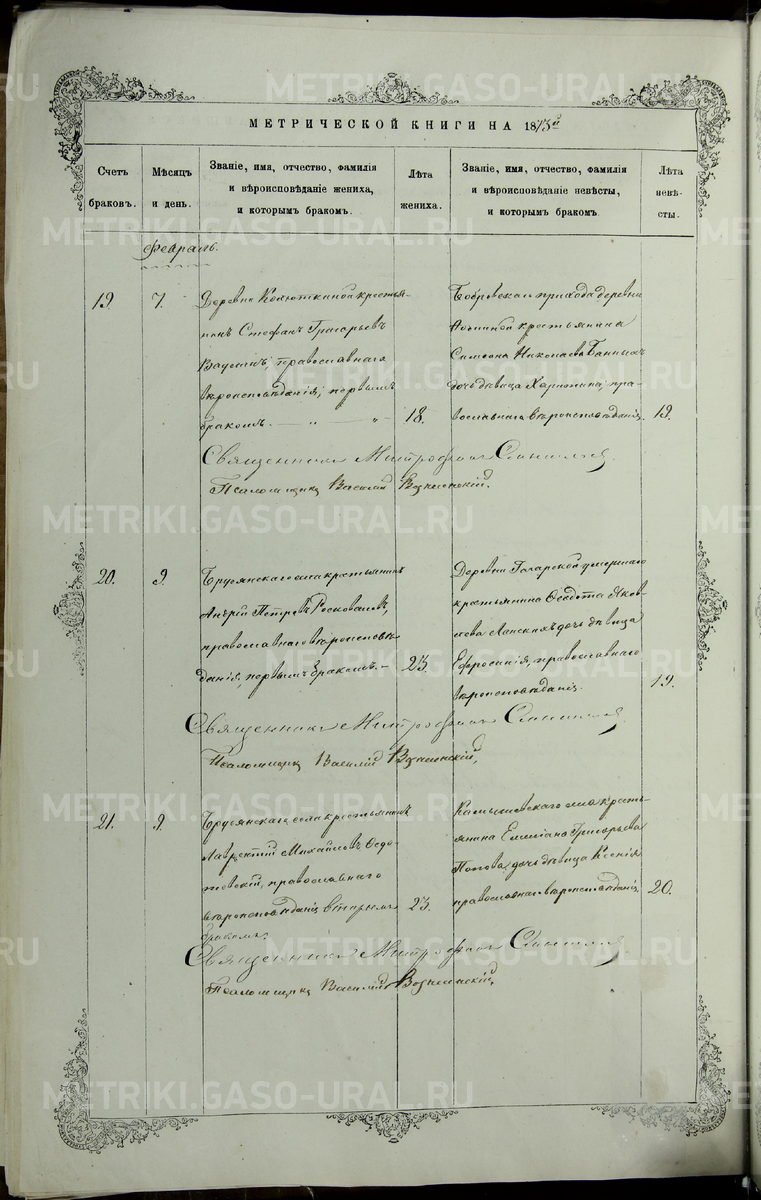 МЕТРИЧЕСКОЙ КНИГИ НА 1873й
Счетъ браковъ.
Мѣсяцъ и день.
Званіе, имя, отчество, фамилія
и вѣроисповѣданіе жениха,
и которымъ бракомъ.
Лѣта жениха.
Званіе, имя, отчество, фамилія
и вѣроисповѣданіе невѣсты,
и которымъ бракомъ
Лѣта невѣ-
сты.
Февраль.
19
7.
Деревни Колюткиной кресть-
нинъ Стефанъ Григорьевъ
православнаго
вѣроисповѣданія, первымъ
бракомъ. — „ — „
18.
Бобровскаго прихода деревни
крестьянина
Симеона Николаева Банныхъ
дочь дѣвица Харитина, пра-
вославнаго вѣроисповѣданія.
19.
Священникъ Митрофанъ
Псаломщикъ Василій Вознесенскій.
20.
9.
Бруснянскаго села крестьянинъ
Андрей Петровъ
православнаго вѣроисповѣ-
данія, первымъ бракомъ. —
23.
Деревни Гагарской умершаго
крестьянина Федота Яков-
лева дочь дѣвица
Ефросинія, православнаго
вѣроисповѣданія.
19.
Священникъ Митрофанъ
Псаломщикъ Василій Вознесенскій,
21.
9.
Бруснянскаго села крестьянинъ
Лаврентій Михайловъ Федо-
товскій, православнаго
вѣроисповѣданія вторымъ
бракомъ.
23.
Камышевскаго села кресть-
янина Емеліана Григорьева
Попова, дочь дѣвица Ксенія
православнаго вѣроисповѣданія.
20.
Священникъ Митрофанъ
Псаломщикъ Василій Вознесенскій,
METRIKI.GASO-URAL.RU